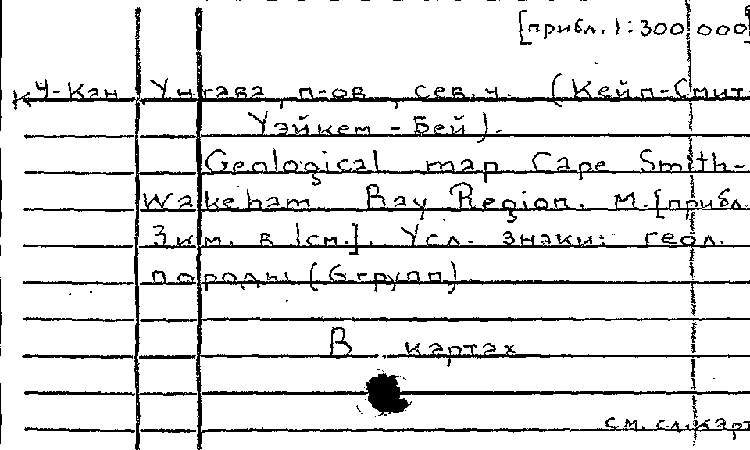 [прибл. 1:300 000]
Ч-Кан Унгава, п-ов, сев.ч. (Кейп-Смит-
Уэйкем-Бей).
Geological map Cape Smith-
Wakeham Bay Region. М.[прибл.
3км. в 1см.]. Усл. знаки: геол.
породы (6 групп)
В картах
см. сл.карт